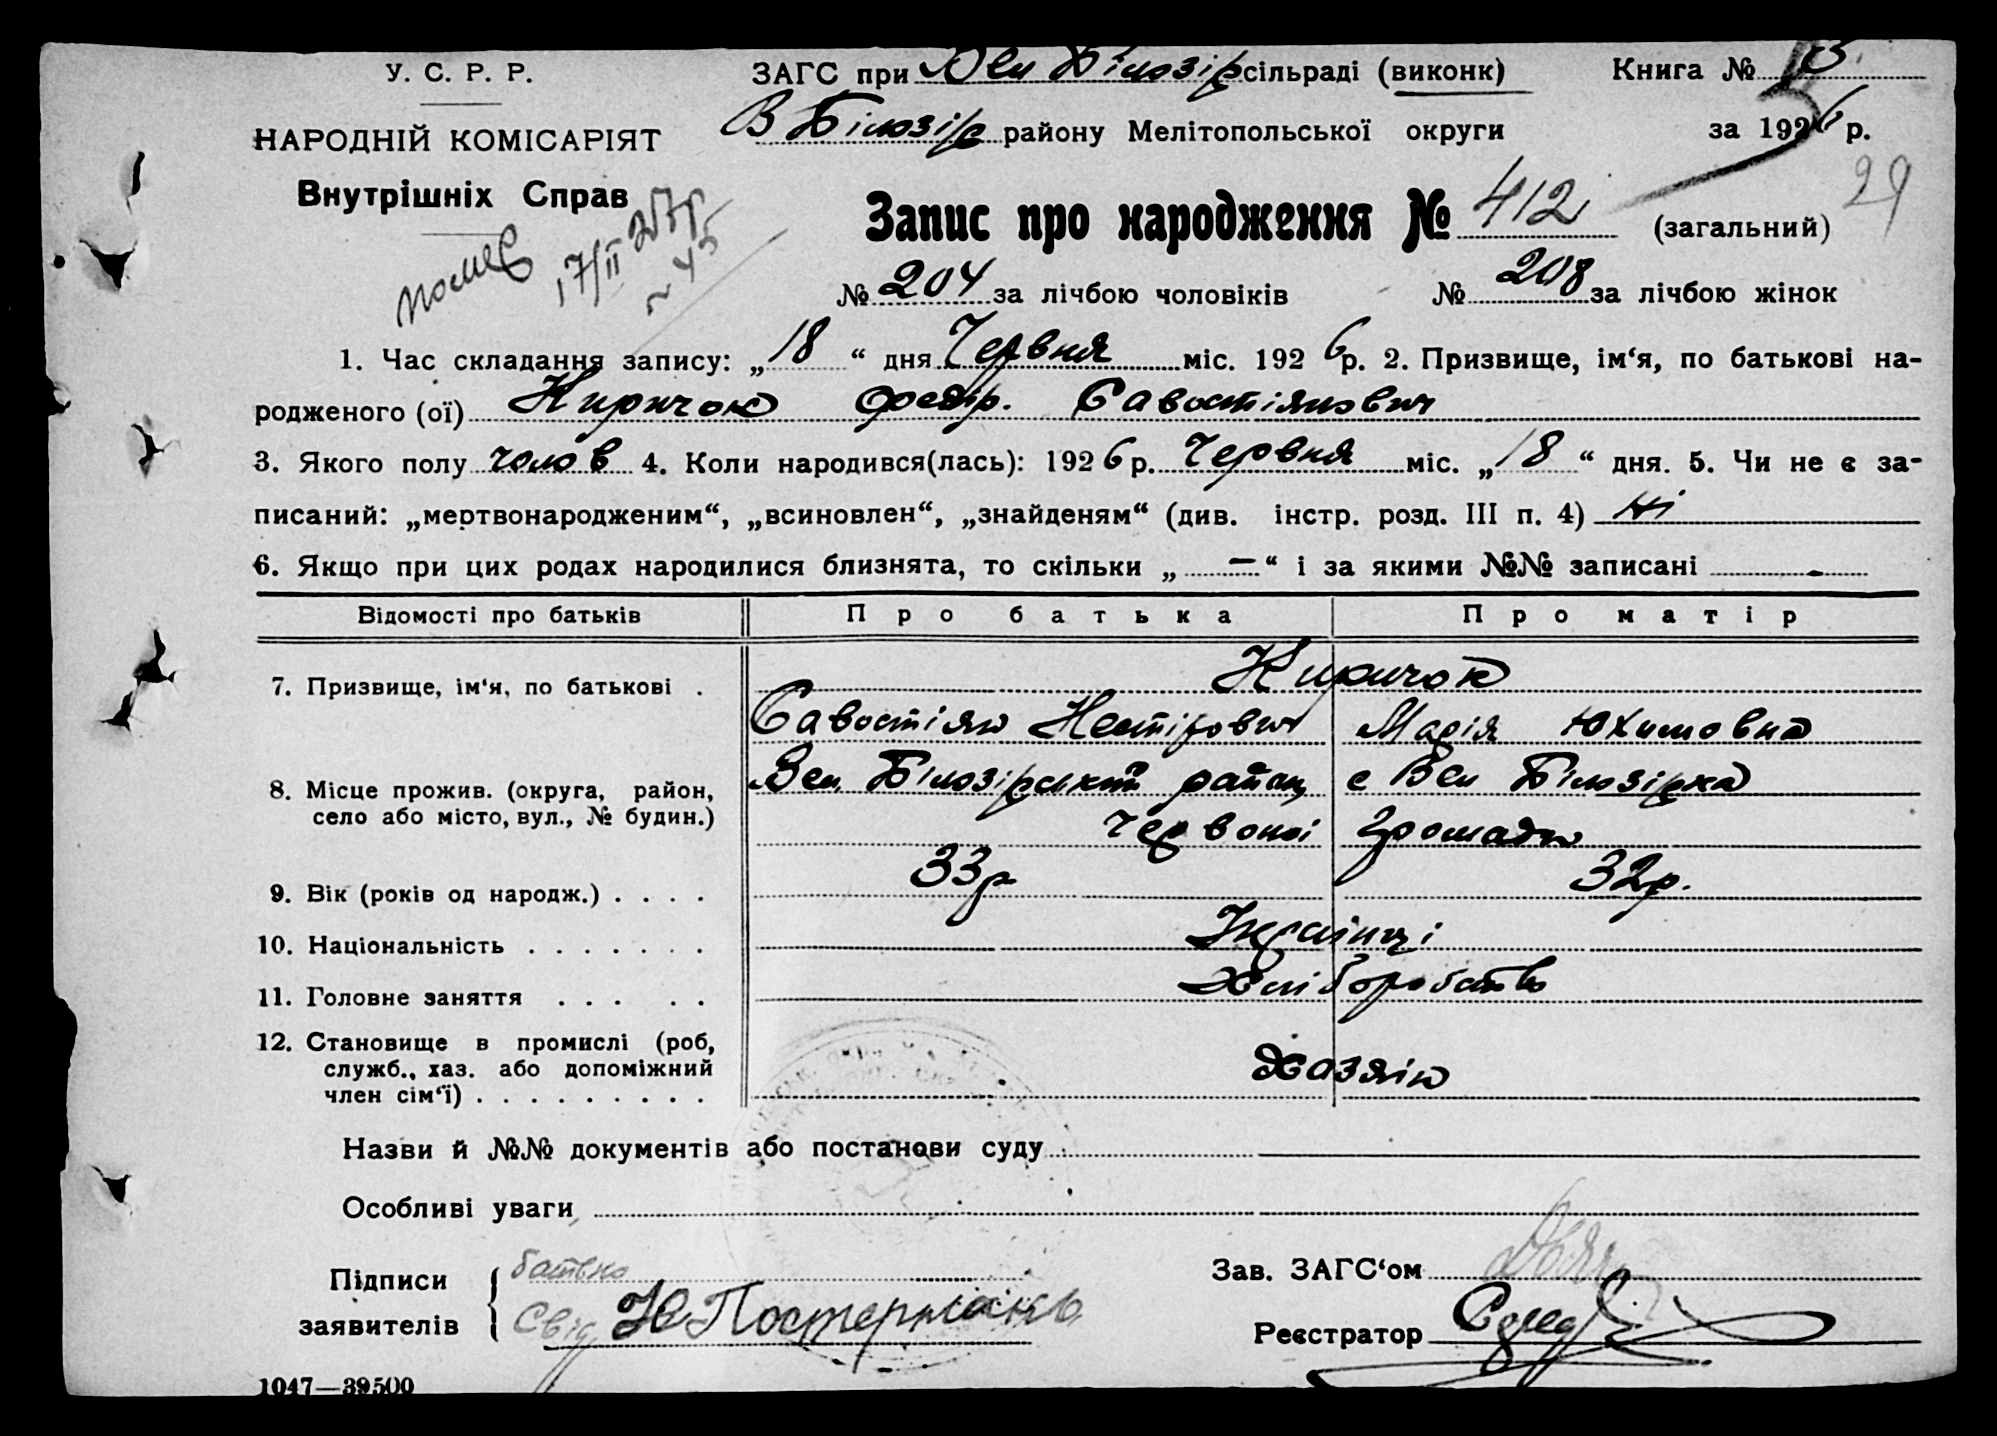 У. С. Р. Р.
НАРОДНІЙ КОМІСАРІЯТ
Внутрішніх Справ
помер 17/II 27р
№ 45
ЗАГС при Вел Білозір сільраді (виконк)
В Білозір району Мелітопольської округи
Книга №
за 1926 р.
29
Запис про народження № 412 (загальний)
№ 204 за лічбою чоловіків № 208 за лічбою жінок
1. Час складання запису: „18“ дня Червня міс. 1926 р. 2. Призвище, ім‘я, по батькові на-
родженого (ої) Киричок Федір. Савостіянович
3. Якого полу чолов 4. Коли народився(лась): 1926 р. Червня міс. „18“ дня. 5. Чи не є за-
писаний: „мертвонародженим“, „всиновлен“, „знайденям“ (див. інстр. розд. III п. 4) Ні
6. Якщо при цих родах народилися близнята, то скільки „ — “ і за якими №№ записані -
Відомості про батьків Про батька Про матір
7. Призвище, ім‘я, по батькові . Киричок
Савостіян Нестірович Марія Юхимовна
8. Місце прожив. (округа, район, Вел. Білозірський район, с Вел Білозірка
село або місто, вул., № будин.) Червоної Громади
9. Вік (років од народж.) . . . . 33р 32р.
10. Національність . . . . . . . Українці
11. Головне заняття . . . . . Хліборобство
12. Становище в промислі (роб,
служб., хаз. або допоміжний Хазяін
член сім‘ї) . . . . . . . . .
Назви й №№ документів або постанови суду
Особливі уваги
Підписи батько
заявителів Свід
Зав. ЗАГС‘ом
Реєстратор
1047—39500